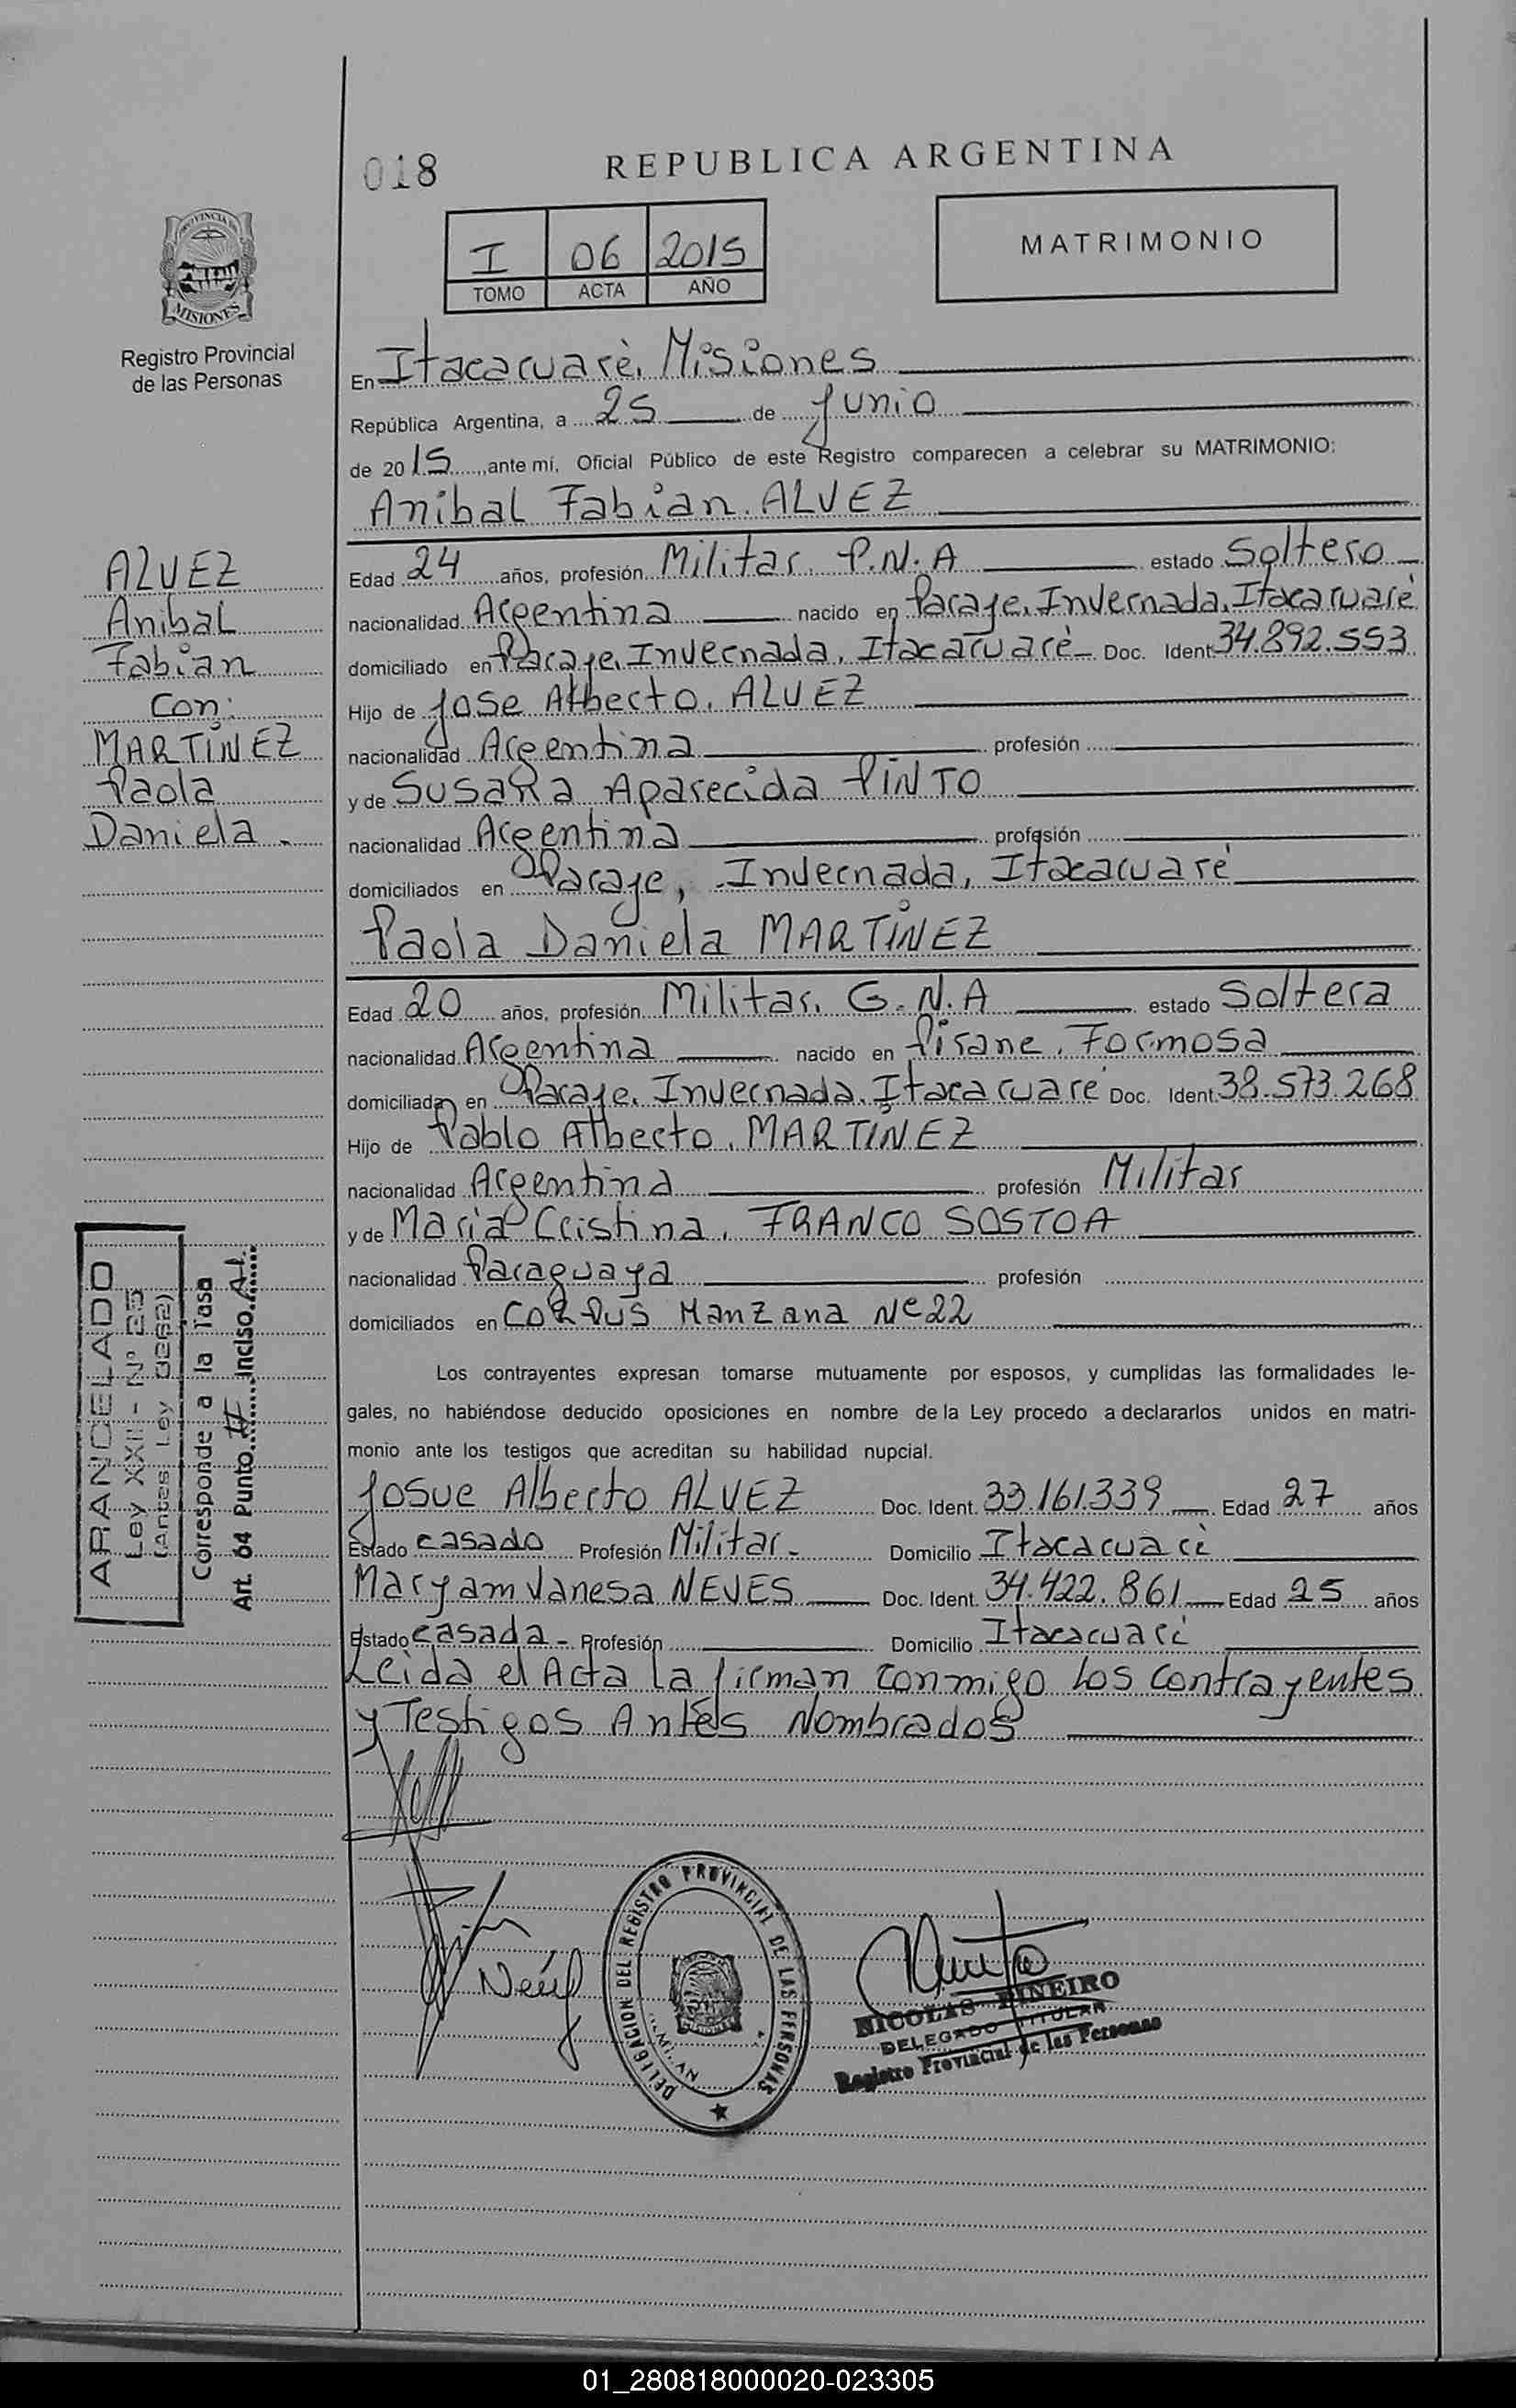 018
REPUBLICA ARGENTINA
I 06 2015
TOMO ACTA AÑO
MATRIMONIO
PROVINCIA DE
MISIONES
Registro Provincial
de las Personas
En Itacaruarè, Misiones
República Argentina, a 25 de Junio
de 2015, ante mí, Oficial Público de este Registro comparecen a celebrar su MATRIMONIO:
Anibal Fabian. ALVEZ
ALVEZ
Anibal
Fabian
Con:
MARTINEZ
Paola
Daniela.
Edad 24 años, profesión Militar. P.N.A estado Soltero
nacionalidad Argentina nacido en Paraje, Invernada, Itacaruarè
domiciliado en Paraje, Invernada, Itacaruarè Doc. Ident. 34.892.553
Hijo de Jose Alberto, ALVEZ
nacionalidad Argentina profesión
y de Susana Aparecida PINTO
nacionalidad Argentina profesión
domiciliados en Paraje, Invernada, Itacaruarè
Paola Daniela MARTINEZ
Edad 20 años, profesión Militar. G.N.A estado Soltera
nacionalidad Argentina nacido en Pirane, Formosa
domiciliada en Paraje, Invernada, Itacaruarè Doc. Ident. 38.573.268
Hijo de Pablo Alberto, MARTINEZ
nacionalidad Argentina profesión Militar
y de Maria Cristina, FRANCO SOSTOA
nacionalidad Paraguaya profesión
domiciliados en CORPUS Manzana Nº 22
Los contrayentes expresan tomarse mutuamente por esposos, y cumplidas las formalidades le-
gales, no habiéndose deducido oposiciones en nombre de la Ley procedo a declararlos unidos en matri-
monio ante los testigos que acreditan su habilidad nupcial.
Josue Alberto ALVEZ Doc. Ident. 33.161.339 Edad 27 años
Estado casado Profesión Militar- Domicilio Itacaruarè
Maryam Vanesa NEVES Doc. Ident. 34.422.861 Edad 25 años
Estado casada - Profesión Domicilio Itacaruarè
Leida el Acta la firman conmigo los contrayentes
y Testigos Antes Nombrados
ARANCELADO
Ley XXII - Nº
(Antes Ley
Corresponde a la Tasa
Art. 64 Punto II inciso A1
DELEGACION DEL REGISTRO PROVINCIAL DE LAS PERSONAS
NICOLAS PINEIRO
DELEGADO TITULAR
Registro Provincial de las Personas
01_280818000020-023305